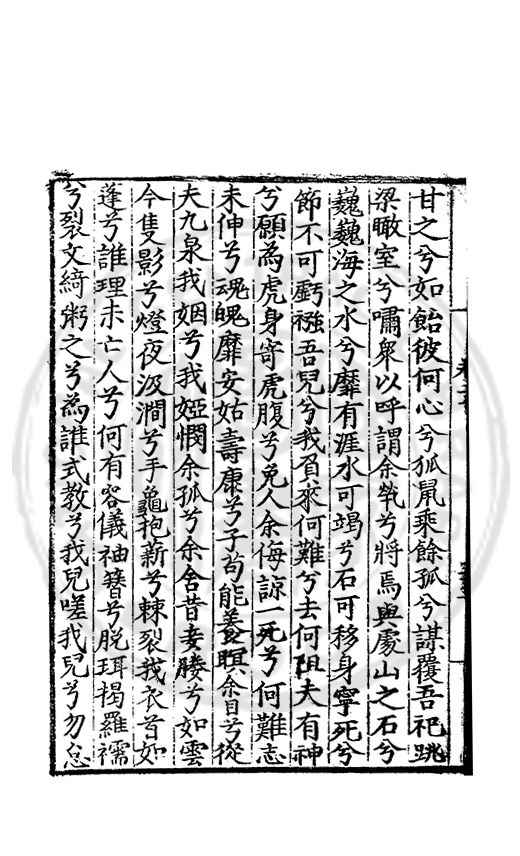 甘之兮如飴彼何心兮狐鼠乘餘孤兮謀覆吾祀跳
梁瞰室兮嘯衆以呼謂余煢兮將焉與處山之石兮
巍巍海之水兮靡有涯水可竭兮石可移身寧死兮
節不可虧襁吾兒兮我負來何難兮去何阻夫有神
兮願為虎身寄虎腹兮免人余侮諒一死兮何難志
未伸兮魂魄靡安姑壽康兮子苟能養瞑余目兮從
夫九泉我姻兮我婭憫余孤兮余舍昔妾媵兮如雲
今隻影兮燈夜汲澗兮手龜抱薪兮棘裂我衣首如
蓬兮誰理未亡人兮何有容儀袖簪兮脫珥褐羅襦
兮裂文綺粥之兮為誰式教兮我兒嗟我兒兮勿怠